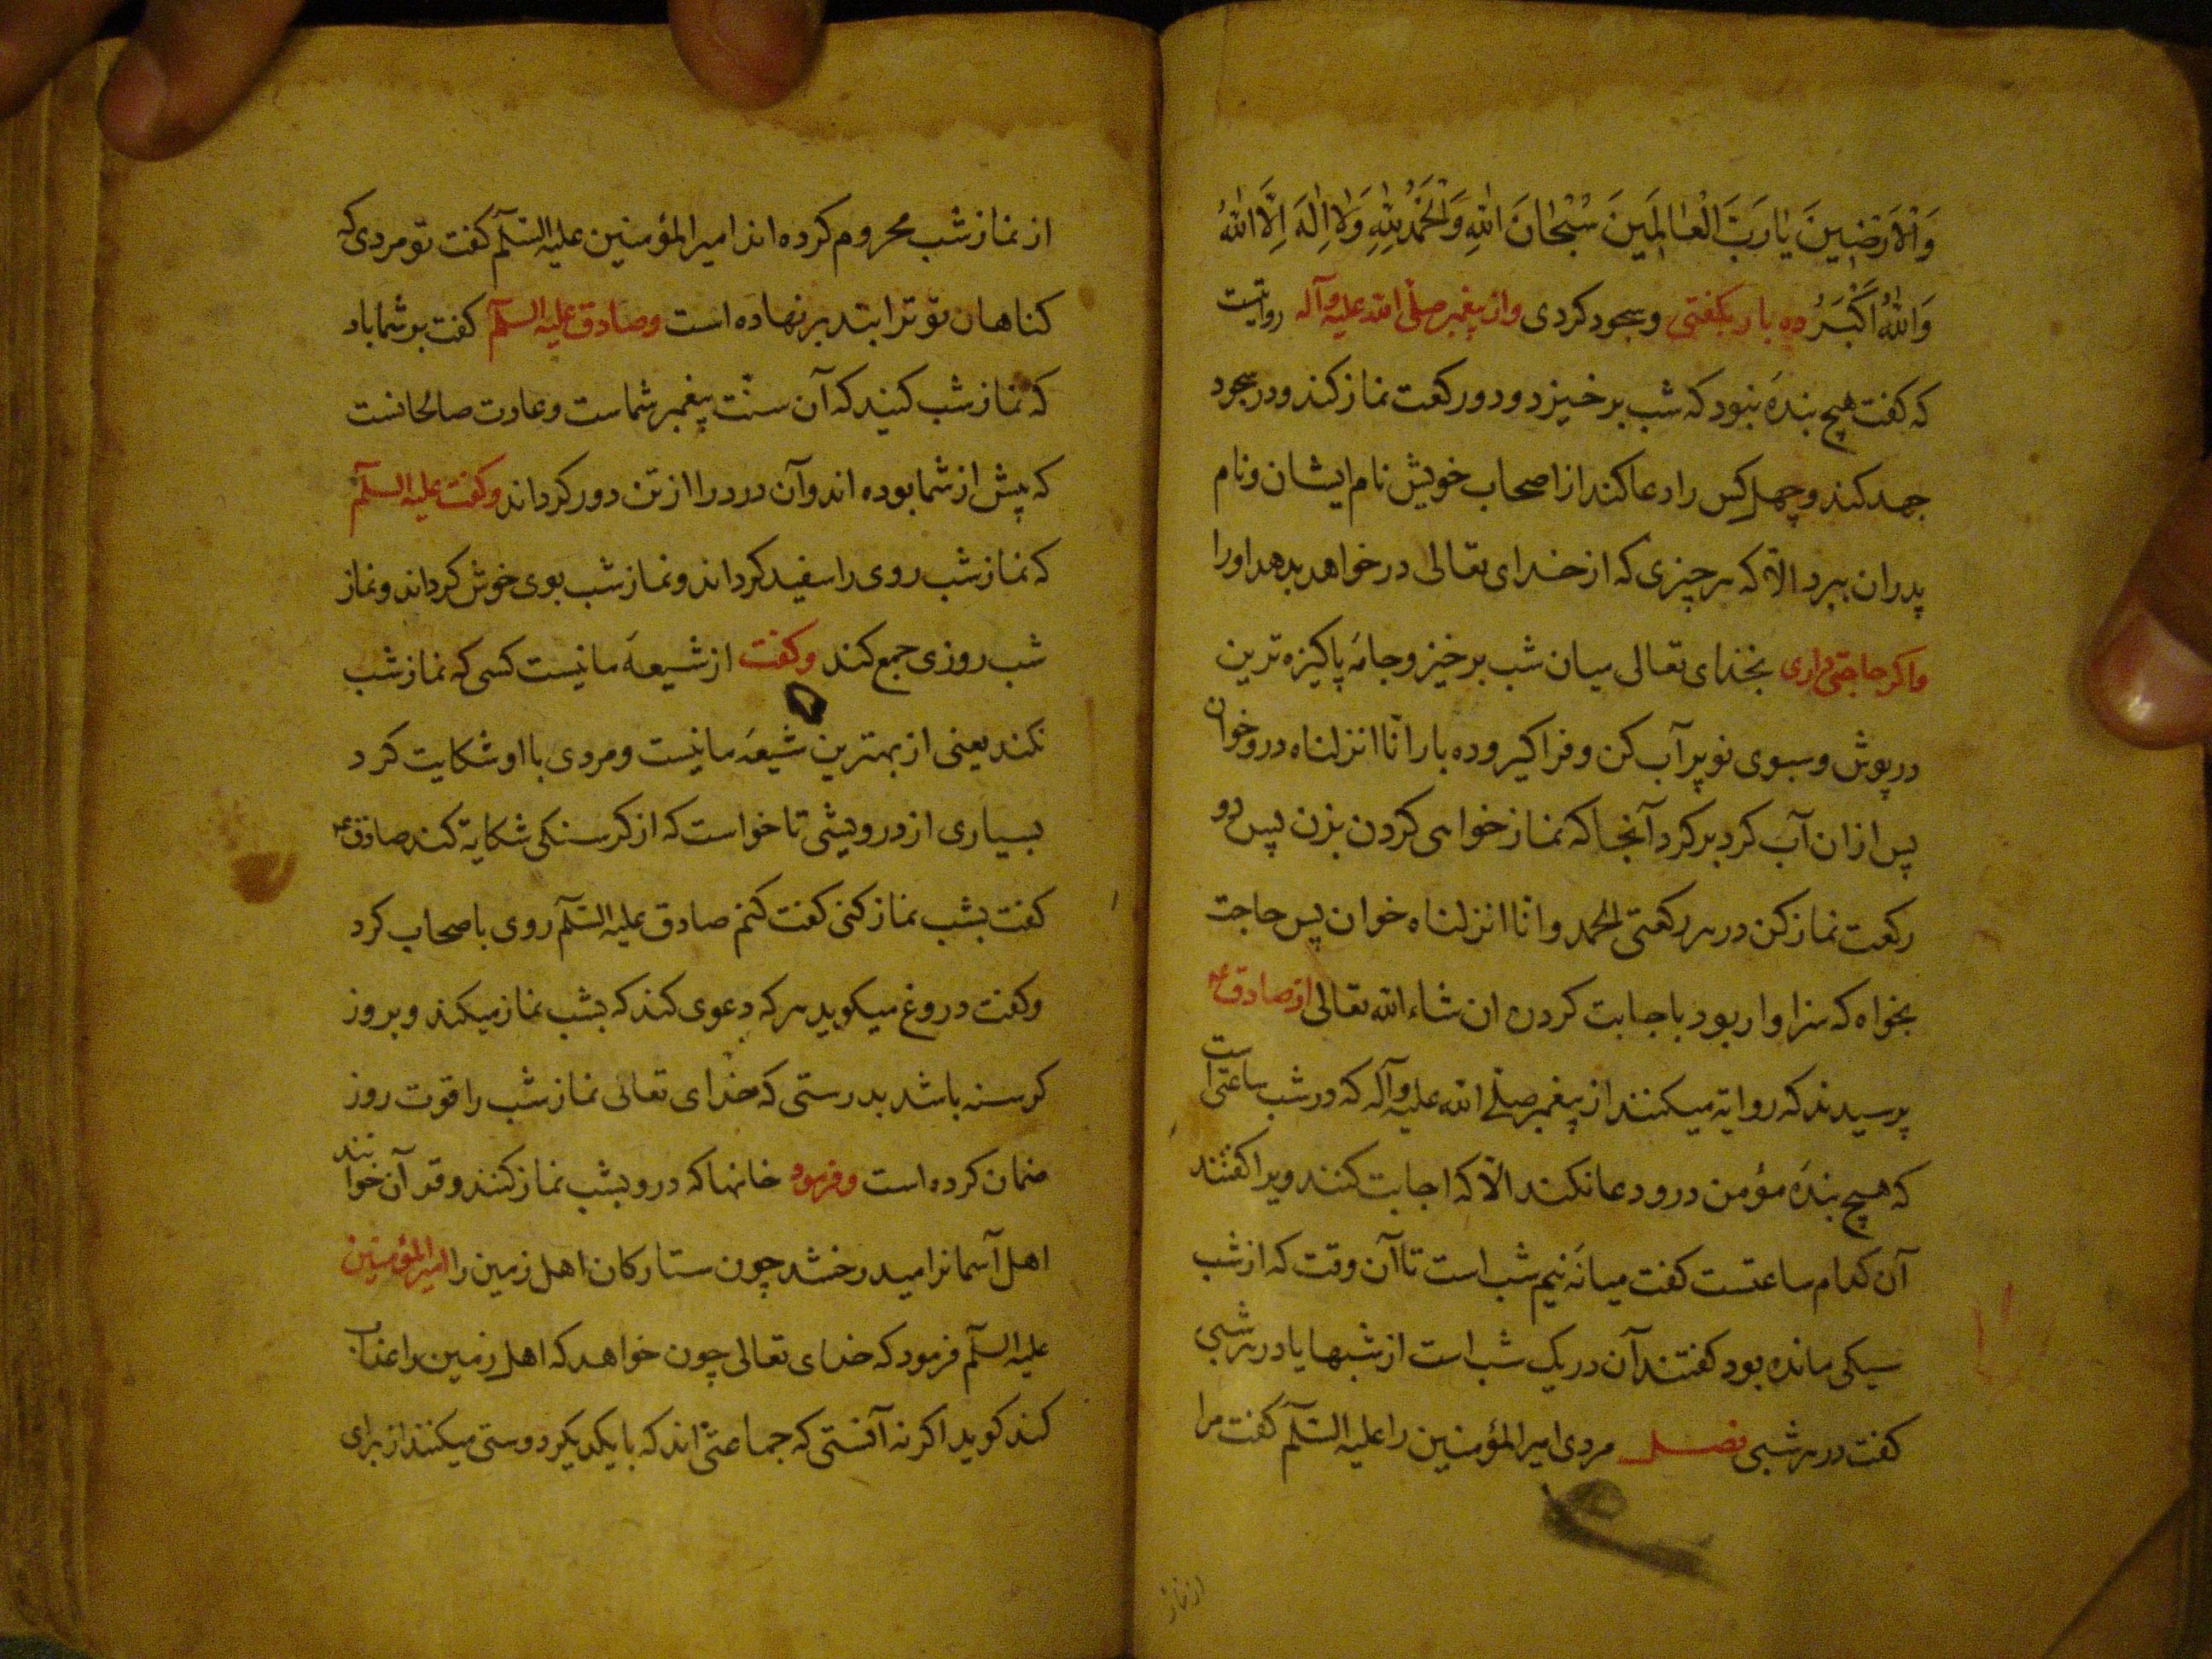 وَالْاَرَضٖينَ يٰا رَبَّ الْعٰالَمٖينَ سُبْحٰانَ اللّٰهِ وَالْحَمْدُ لِلّٰهِ وَلٰا اِلٰهَ اِلَّا اللّٰهُ
وَاللّٰهُ اَكْبَرُ ده بار بكفتى وسجود كردى واز پيغمبر صلّى الله عليه وآله روايتست
كه كفت هيچ بندهٔ نبود كه شب برخيزد ودو ركعت نماز كند ودر سجود
جهد كند وچهل كس را دعا كند از اصحاب خويش نام ايشان ونام
پدران ببرد الّا كه هر چيزى كه از خداى تعالى درخواهد بدهد او را
واكر حاجتى دارى بخداى تعالى ميان شب برخيز وجامهٔ پاكيزه ترين
درپوش وسبوى نو پر آب كن وفراكير وده بار انّا انزلناه درو خوان
پس از ان آب كرد بر كرد آنجا كه نماز خواهى كردن بزن پس دو
ركعت نماز كن در هر ركعتى الحمد وانّا انزلناه خوان پس حاجت
بخواه كه سزاوار بود باجابت كردن ان شاء الله تعالى از صادق ع
پرسيدند كه رواية ميكنند از پيغمبر صلّى الله عليه وآله كه در شب ساعتى است
كه هيچ بندهٔ مؤمن درو دعا نكند الّا كه اجابت كنند ويرا كفتند
آن كدام ساعتست كفت ميانهٔ نيم شب است تا آن وقت كه از شب
سيكى مانده بود كفتند آن در يك شب است از شبها يا در هر شبى
كفت در هر شبى فصل مردى امير المؤمنين را عليه السّلم كفت مرا
از نماز
از نماز شب محروم كرده اند امير المؤمنين عليه السّلم كفت تو مردى كه
كناهان تو ترا بند برنهاده است وصادق عليه السلم كفت بر شما باد
كه نماز شب كنيد كه آن سنّت پيغمبر شماست وعادت صالحانست
كه پيش از شما بوده اند وآن درد را از تن دور كرداند وكفت عليه السلم
كه نماز شب روى را سفيد كرداند ونماز شب بوى خوش كرداند ونماز
شب روزى جمع كند وكفت از شيعهٔ ما نيست كسى كه نماز شب
نكند يعنى از بهترين شيعهٔ ما نيست ومردى با او شكايت كرد
بسيارى از درويشى تا خواست كه از كرسنكى شكاية كند صادق ع
كفت بشب نماز كنى كفت كنم صادق عليه السّلم روى باصحاب كرد
وكفت دروغ ميكويد هر كه دعوى كند كه بشب نماز ميكند وبروز
كرسنه باشد بدرستى كه خداى تعالى نماز شب را قوت روز
ضمان كرده است وفرمود خانها كه درو بشب نماز كنند وقرآن خوانند
اهل آسمانرا ميدرخشد چون ستاركان اهل زمين را امير المؤمنين
عليه السلم فرمود كه خداى تعالى چون خواهد كه اهل زمين را عذاب
كند كويد اكر نه آنستى كه جماعتى اند كه با يكديكر دوستى ميكنند از براى